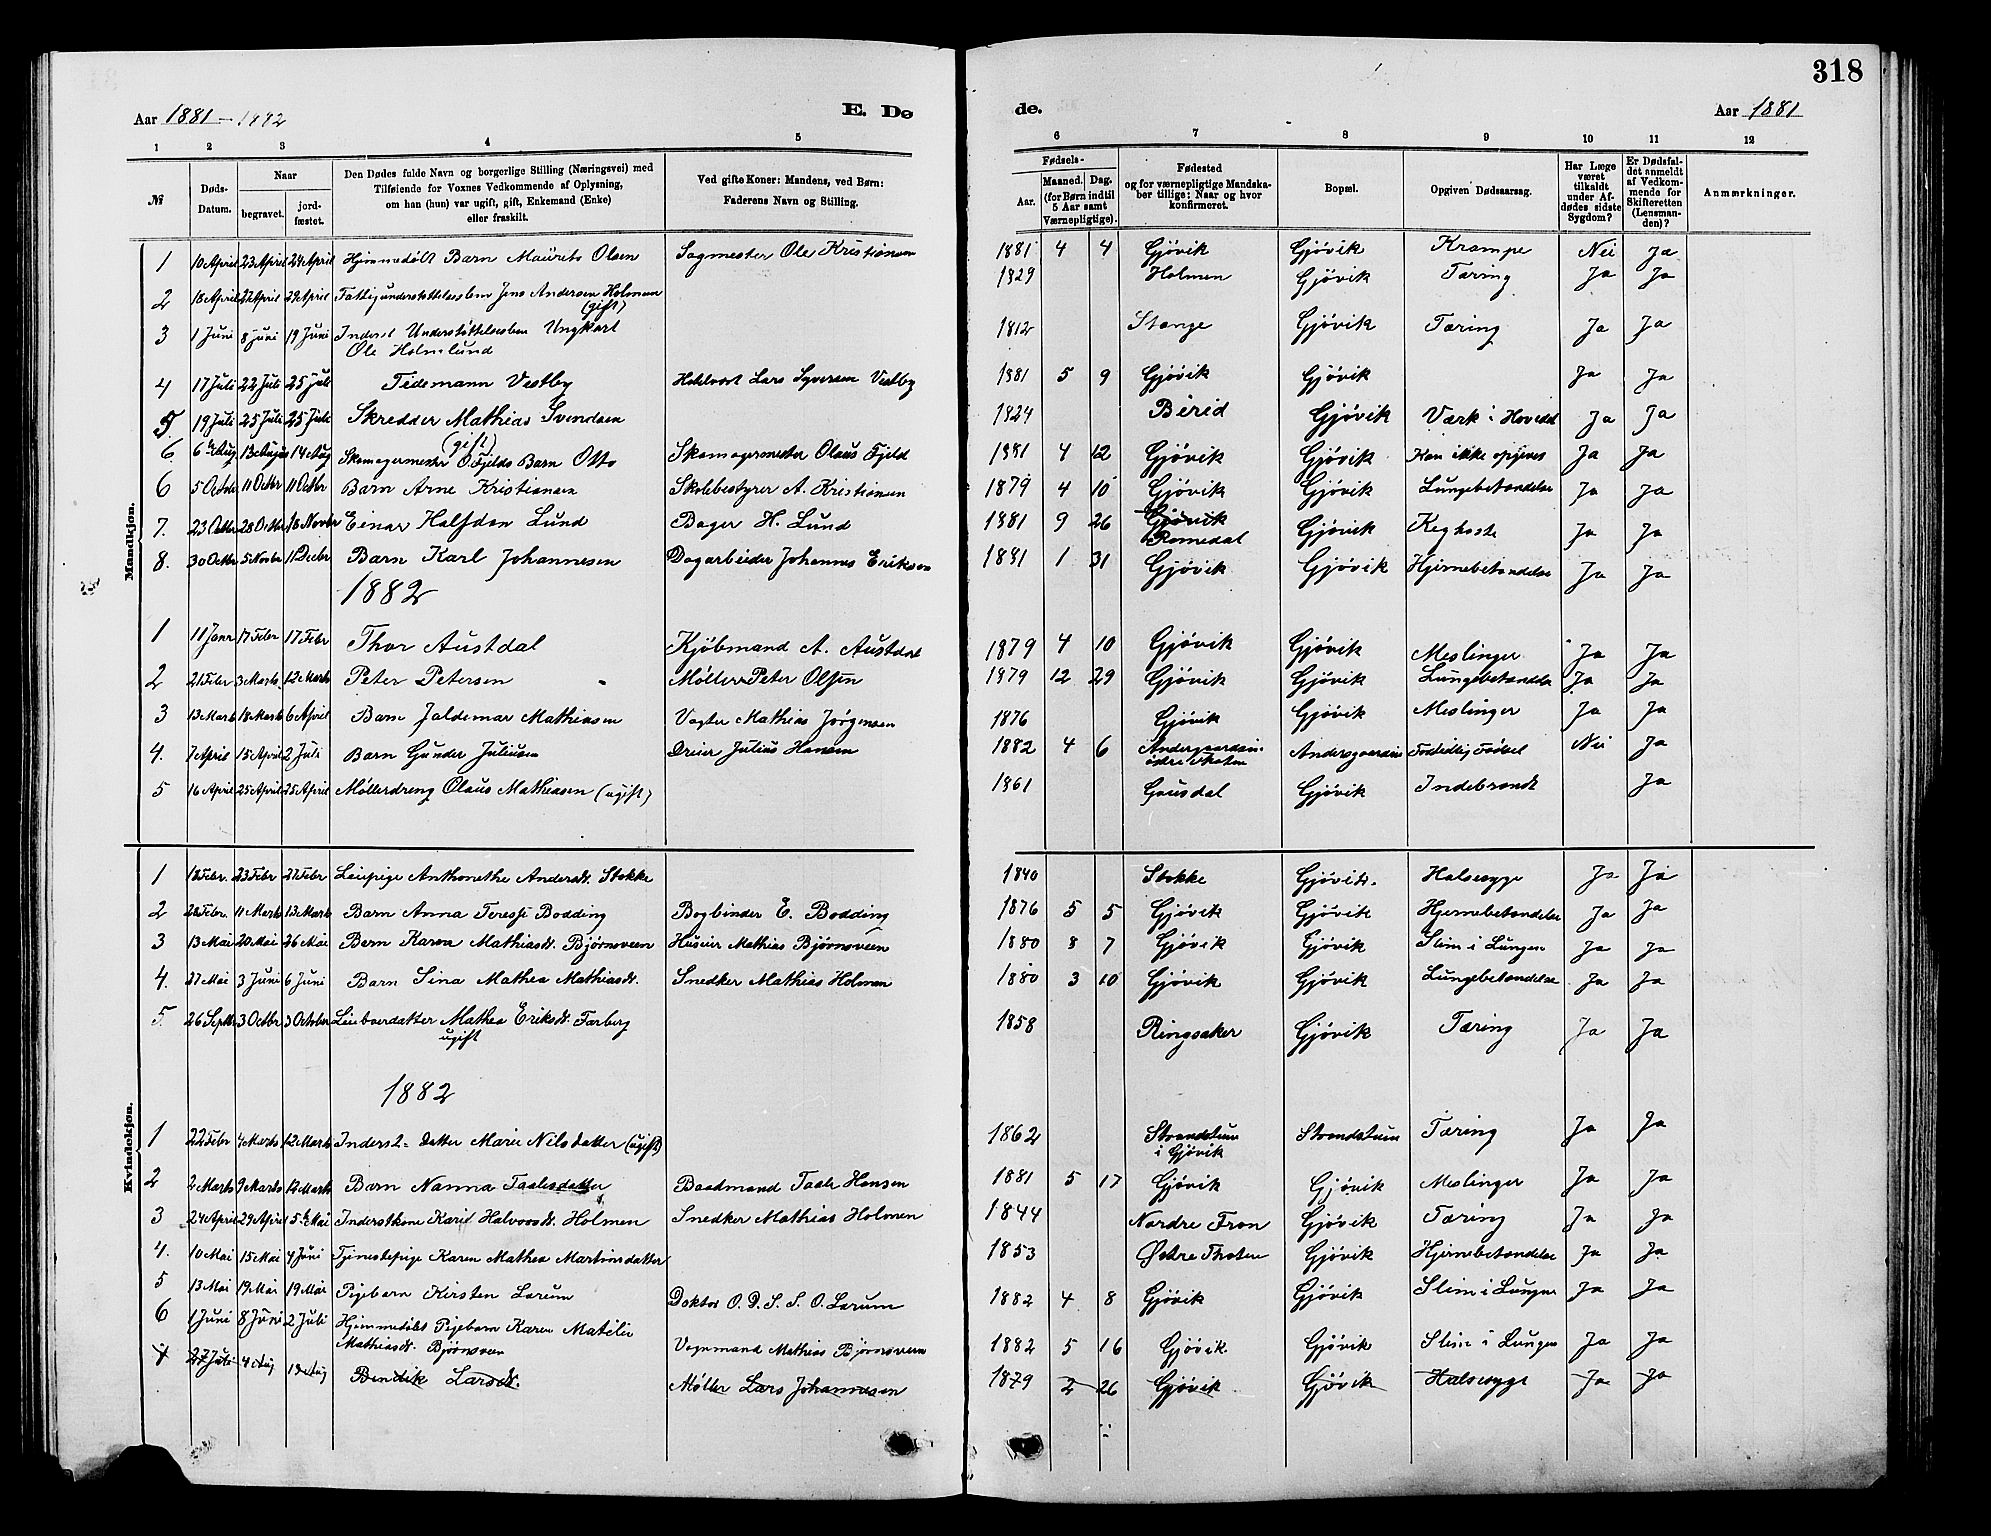 318
Aar 1881-1882 E. Dø de. Aar 1881
1 2 3 4 5 6 7 8 9 10 11 12
№ Døds-Datum. Naar begravet. jord-fæstet. Den Dødes fulde Navn og borgerlige Stilling (Næringsvei) med Tilføiende for Voxnes Vedkommende af Oplysning, om han (hun) var ugift, gift, Enkemand (Enke) eller fraskilt. Ved gifte Koner: Mandens, ved Børn: Faderens Navn og Stilling. Fødsels- Aar. Maaned. Dag. (for Børn indtil 5 Aar samt Værnepligtige). Fødested og for værnepligtige Mandskaber tillige: Naar og hvor konfirmeret. Bopæl. Opgiven Dødsaarsag. Har Læge været tilkaldt under Afdødes sidste Sygdom? Er Dødsfaldet anmeldt af Vedkommende for Skifteretten (Lensmanden)? Anmærkninger.
Mandkjøn.
1 10 April 23 April 24 April Hjemmedøbt Barn Maurits Olsen Sagmester Ole Kristiansen 1881 4 4 Gjøvik Gjøvik Krampe Nei Ja
2 18 April 27 April 29 April Fattigunderstøttelseslem Jens Andersen Holmen (gift) 1829 Holmen Gjøvik Tæring Ja Ja
3 1 Juni 8 Juni 19 Juni Inderst Understøttelseslem Ungkarl 1812 Stange Gjøvik Tæring Ja Ja
Ole Holmlund
4 17 Juli 22 Juli 25 Juli Tidemann Vestby Hotelvært Lars Syversen Vestby 1881 5 9 Gjøvik Gjøvik Ja Ja
5 19 Juli 25 Juli 25 Juli Skredder Mathias Svendsen (gift) 1824 Birid Gjøvik Værk i Hoved Ja Ja
6 6 Aug 13 August 14 Aug Skomagermester O. Fjelds Barn Otto Skomagermester Olaus Fjeld 1881 4 12 Gjøvik Gjøvik Kan ikke opgives Ja Ja
6 5 Octbr 11 Octbr 11 Octbr Barn Arne Kristiansen Skolebestyrer A. Kristiansen 1879 4 10 Gjøvik Gjøvik Lungebetændelse Ja Ja
7. 23 Octbr 28 Octbr 18 Novbr Einar Halfdan Lund Bager H. Lund 1881 9 26 Gjøvik Romedal Gjøvik Kighoste Ja Ja
8. 30 Octbr 5 Novbr 11 Decbr Barn Karl Johannesen Dagarbeider Johannes Eriksen 1881 1 31 Gjøvik Gjøvik Hjernebetændelse Ja Ja
1882
1 11 Janr 17 Febr 17 Febr Thor Austdal Kjøbmand A. Austdal 1879 4 10 Gjøvik Gjøvik Meslinger Ja Ja
2 21 Febr 3 Marts 12 Marts Peter Petersen Møller Peter Olsen 1879 12 29 Gjøvik Gjøvik Lungebetændelse Ja Ja
3 13 Marts 18 Marts 6 April Barn Jaldemar Mathiasen Vagter Mathias Jørgensen 1876 Gjøvik Gjøvik Meslinger Ja Ja
4. 7 April 15 April 2 Juli Barn Gunder Juliusen Dreier Julius Hansen 1882 4 6 østre Thoten Fortidlig Født Nei Ja
5 16 April 25 April 25 April Møllerdreng Olaus Mathiasen (ugift) 1861 Gausdal Gjøvik Indebrændt Ja
Kvindekjøn.
1 18 Febr. 23 Febr 27 Febr Leiepige Anthonethe Andersdt. Stokke 1840 Stokke Gjøvik. Halsesyge Ja Ja
2 28 Febr. 11 Marts 13 Marts Barn Anna Terese Bodding Bogbinder E. Bodding 1876 5 5 Gjøvik Gjøvik Hjernebetændelse Ja Ja
3 13 Mai 20 Mai 26 Mai Barn Karen Mathiasdt. Bjørnsveen Huseier Mathias Bjørnsveen 1880 8 7 Gjøvik Gjøvik Slim i Lungen Ja Ja
4. 27 Mai 3 Juni 6 Juni Barn Sina Mathea Mathiasdt. Snedker Mathias Holmen 1880 3 10 Gjøvik Gjøvik Lungebetændelse Ja Ja
5. 26 Septbr 3 Octbr 3 October Leieboerdatter Mathea Eriksdt. Farberg ugift 1858 Ringsaker Gjøvik Tæring Ja Ja
1882
1 22 Febr 4 Marts 12 Marts Inderst= Datter Marie Nilsdatter (ugift) 1862 Strandstuen i Gjøvik Strandstuen Tæring Ja Ja
2 2 Marts 9 Marts 12 Marts Barn Nanna Taalesdatter Baadmand Taale Hansen 1881 5 17 Gjøvik Gjøvik Meslinger Ja Ja
3 24 April 29 April 5 Mai Inderstkone Kari Halvorsdt. Holmen Snedker Mathias Holmen 1844 Nordre Fron Gjøvik Tæring Ja Ja
4. 10 Mai 15 Mai 4 Juni Tjenestepige Karen Mathea Martinsdatter 1853 Østre Thoten Gjøvik Hjernebetændelse Ja Ja
5 13 Mai 19 Mai 19 Mai Pigebarn Kirsten Larum Doktor O. D. S. S. O. Larum 1882 4 8 Gjøvik Gjøvik Slim i Lungen Ja Ja
6 1 Juni 8 Juni 2 Juli Hjemmedøbt Pigebarn Karen Matilie
Mathiasdt. Bjørnsveen Vognmand Mathias Bjørnsveen 1882 5 16 Gjøvik Gjøvik Slim i Lungen Ja Ja
7 27 Juli 4 Aug 19 Aug Bendik Larsdt. Møller Lars Johannesen 1879 2 26 Gjøvik Gjøvik Halsesyge Ja Ja